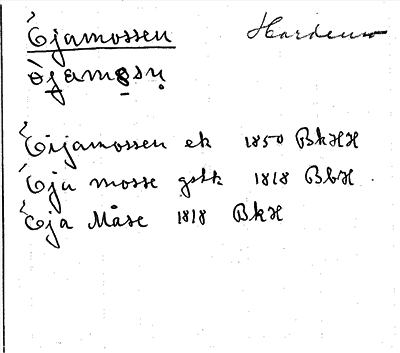 Ejamossen Hardemo
Eijamossen ek 1850 BkHH
Eja mosse gstk 1818 BbH.
Eja Måse 1818 BkH